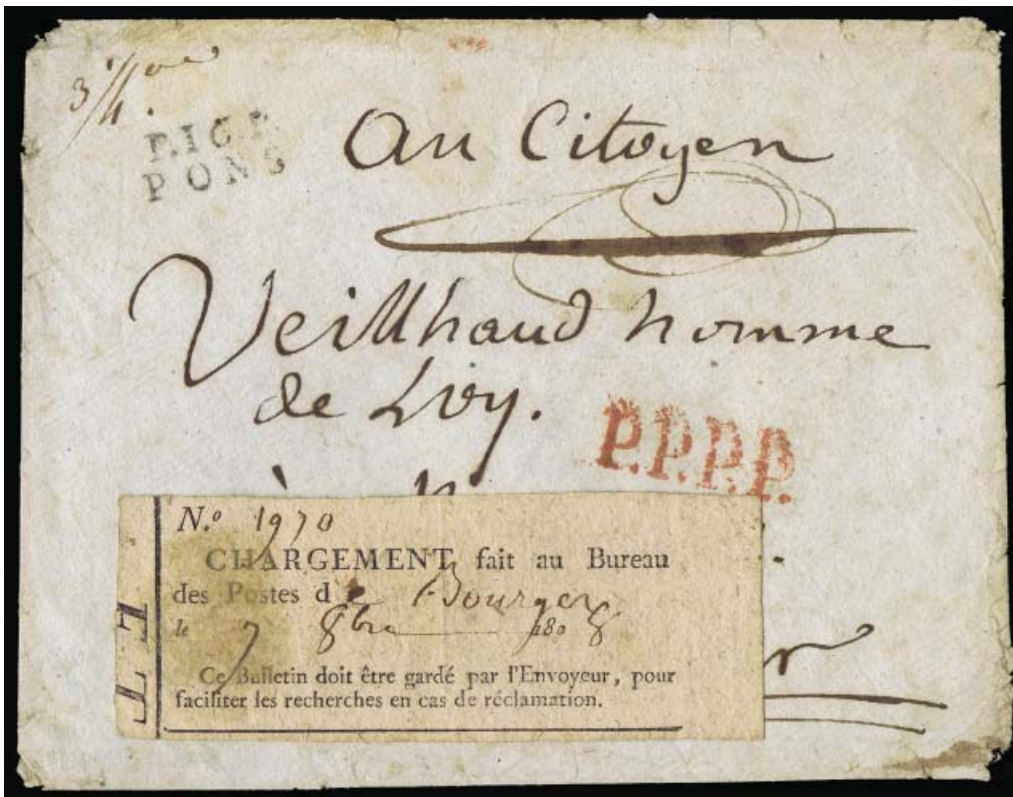 3/4 
P.16.P.
PONS
Au Citoyen
Veillhaud homme
de Loy.
P.P.P.P.
à
N.º 1970
CHARGEMENT fait au Bureau
des Postes de Bourges
le 7 8bre 1808
Ce Bulletin doit être gardé par l'Envoyeur, pour
faciliter les recherches en cas de réclamation.